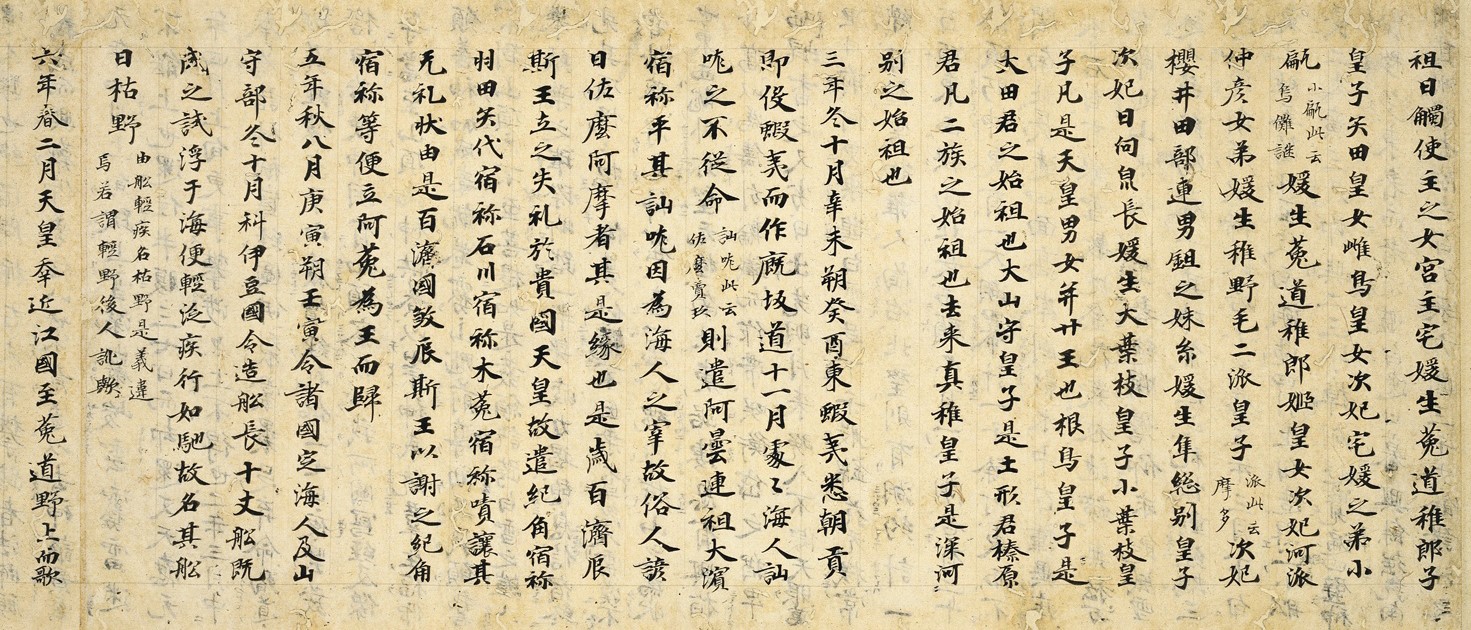 祖日觸使主之女宮主宅媛生菟道稚郎子
皇子矢田皇女雌鳥皇女次妃宅媛之弟小
甂小甂此云烏儺謎媛生菟道稚郎姬皇女次妃河派
仲彥女弟媛生稚野毛二派皇子派此云摩多次妃
櫻井田部連男鉏之妹糸媛生隼総別皇子
次妃日向泉長媛生大葉枝皇子小葉枝皇
子凡是天皇男女并廿王也根鳥皇子是
大田君之始祖也大山守皇子是土形君榛原
君凡二族之始祖也去来真稚皇子是深河
別之始祖也
三年冬十月辛未朔癸酉東蝦夷悉朝貢
即役蝦夷而作廐坂道十一月處々海人訕
哤之不從命訕哤此云佐麼賣玖則遣阿曇連祖大濱
宿祢平其訕哤因為海人之宰故俗人諺
曰佐麼阿摩者其是緣也是歲百濟辰
斯王立之失礼於貴國天皇故遣紀角宿祢
羽田矢代宿祢石川宿祢木菟宿祢嘖讓其
无礼狀由是百濟國敘辰斯王以謝之紀角
宿祢等便立阿菟為王而歸
五年秋八月庚寅朔壬寅令諸國定海人及山
守部冬十月科伊豆國令造舩長十丈舩既
成之試浮于海便輕泛疾行如馳故名其舩
曰枯野由舩輕疾名枯野是義違焉若謂輕野後人訛歟
六年春二月天皇幸近江國至菟道野上而歌